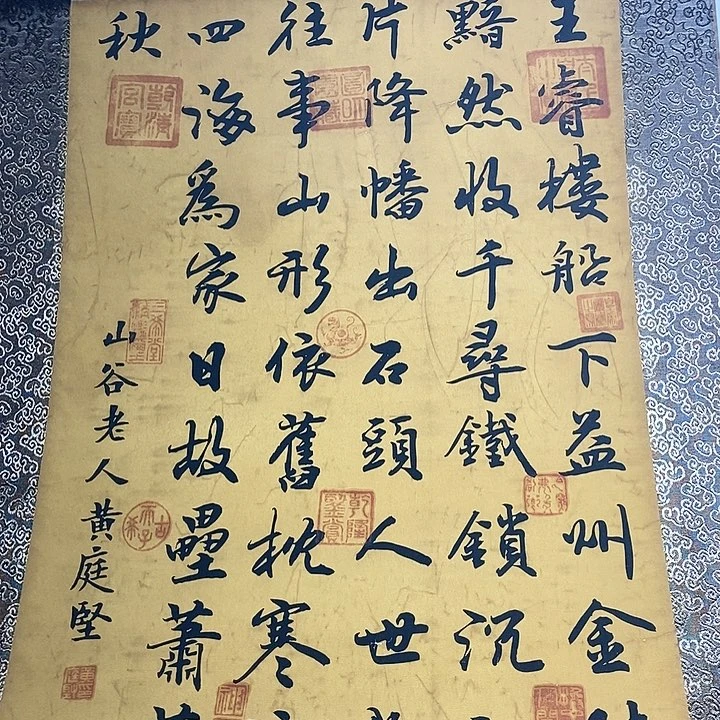 王睿樓船下益州金
黯然收千尋鐵鎖沉
片降幡出石頭人世
往事山形依舊枕寒
四海爲家日故壘蕭
秋
山谷老人黃庭堅